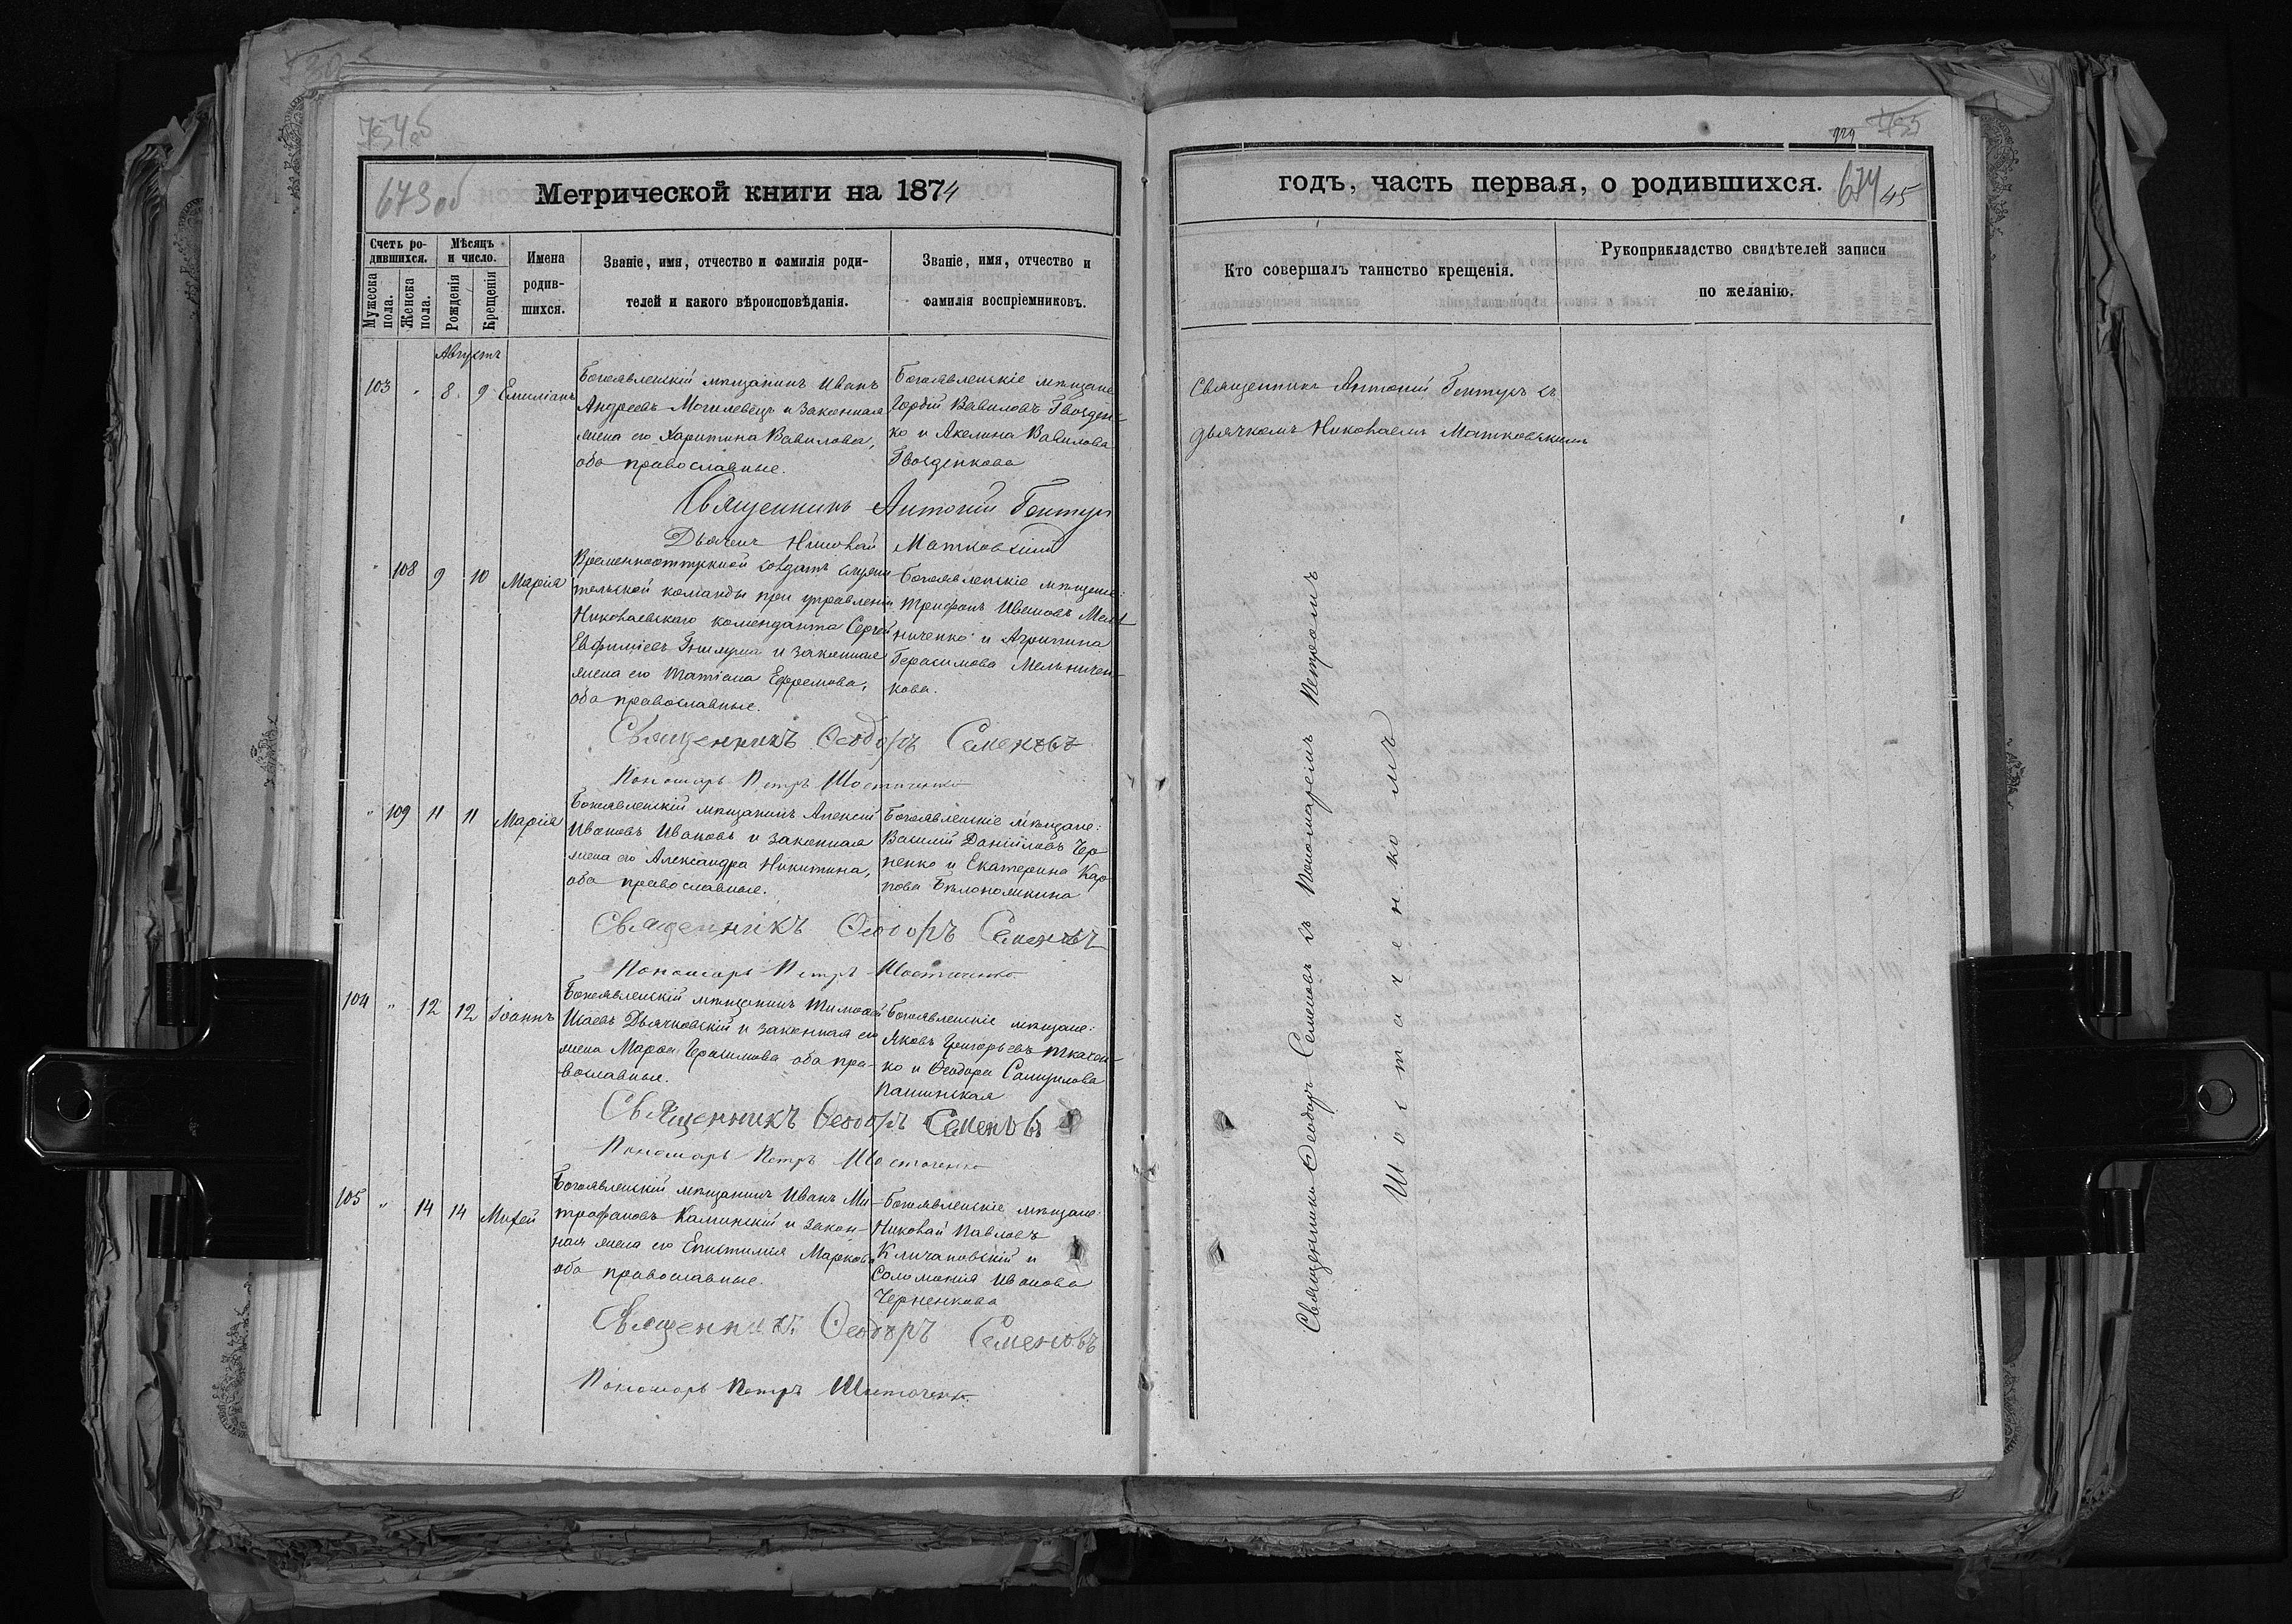 754об
673об
Метрической книги на 1874
Счетъ ро-
дившихся.
Мужеска пола.
Женска пола.
Мѣсяцъ
и число.
Рожденія
Крещенія
Имена
родив-
шихся.
Званіе, имя, отчество и фамилія роди-
телей и какого вѣроисповѣданія.
Званіе, имя, отчество и
фамилія воспріемниковъ.
Августъ
103 " 8 9 Емиліанъ
Богоявленскій мѣщанинъ Иванъ
Андреевъ Могилевецъ и законная
жена его Харитина Вавилова,
оба православные.
Богоявленскіе мѣщане
Гордій Вавиловъ Гвозден-
ко и Акелина Вавилова
Гвозденкова
Священникъ Антоній Гентуръ
Дьячекъ Николай Матковскій
" 108 9 10 Марія
Временноотпускной солдатъ служи-
тельской команды при управленіи
Николаевскаго коменданта Сергей
Евфиміевъ и законная
жена его Татіана Ефремова,
оба православные.
Богоявленскіе мѣщане:
Трифонъ Ивановъ Мель-
ниченко и Агрипина
Герасимова Мельничен-
кова.
Священникъ Ѳеодоръ Семеновъ
Пономарь Петръ Шостаченко
" 109 11 11 Марія
Богоявленскій мѣщанинъ Алексій
Ивановъ Ивановъ и законная
жена его Александра Никитина,
оба православные.
Богоявленскіе мѣщане:
Василій Даніиловъ Чер
ненко и Екатерина Кар
пова
Священникъ Ѳеодоръ Семеновъ
Пономарь Петръ Шостаченко
104 " 12 12 Іоаннъ
Богоявленскій мѣщанинъ Тимоѳей
Исаевъ Дьячковскій и законная его
жена Марѳа Герасимова оба пра-
вославные.
Богоявленскіе мѣщане:
Яковъ Григорьевъ Ткачен-
ко и Ѳеодора Самуилова
Пашинская
Священникъ Ѳеодоръ Семеновъ
Пономарь Петръ Шостаченко
105 " 14 14 Михей
Богоявленскій мѣщанинъ Иванъ Ми-
трофановъ Каминскій и закон-
ная жена его Епистимія Маркова
оба православные.
Богоявленскіе мѣщане:
Николай Павловъ
Кличановскій и
Соломонія Иванова
Черненкова
Священникъ Ѳеодоръ Семеновъ
Пономарь Петръ Шостаченко
929 755
годъ, часть первая, о родившихся.
674 45
Кто совершалъ таинство крещенія.
Рукоприкладство свидѣтелей записи
по желанію.
Священникъ Антоній Гентуръ съ
дьячкомъ Николаемъ Матковскимъ
Священникъ Ѳеодоръ Семеновъ съ Пономаремъ Петромъ
Шостаченкомъ